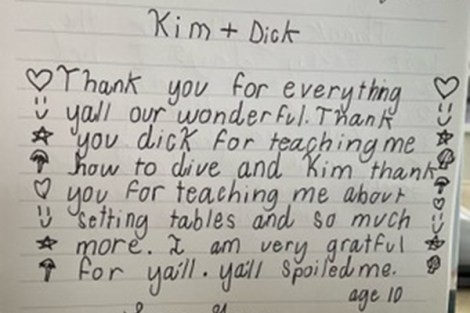 Kim + Dick
Thank you for everything
yall our wonderful. Thank
you dick for teaching me
how to dive and Kim thank
you for teaching me about
setting tables and so much
more. I am very gratful
for ya'll. ya'll spoiled me.
age 10